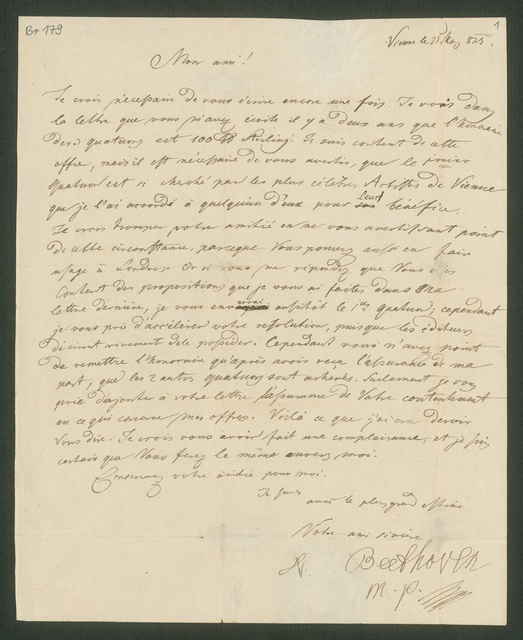 Br 179
1
Vienne le 25 Mars 825.
Mon ami!
Je crois nécessaire de vous écrire encore une fois. Je vois dans
la lettre que vous m'avez écrite il y a deux ans que l'honoraire
des quatuors est 100 £ Sterling. Je suis content de cette
offre, mais il est nécessaire de vous avertir, que le premier
quatuor est si cherché par les plus célèbres Artistes de Vienne
que je l'ai accordé à quelqu'un d'eux pour leur bénéfice.
Je crois tromper votre amitié en ne vous avertissant point
de cette circonstance, parceque Vous pouvez aussi en faire
usage à Londres. Or si vous me répondez que Vous êtes
Content des propositions que je vous ai faites dans ma
lettre dernière, je vous enverrai aussitôt le 1er quatuor; cependant
je vous prie d'accélérer votre resolution, puisque les éditeurs
désirent vivement de le posséder. Cependant vous n'avez point
de remettre l'honoraire qu'après avoir reçu l'assurance de ma
part, que les 2 autres quatuors sont achevés. Seulement je vous
prie d'ajouter à votre lettre l'assurance de Votre contentement
en ce qui concerne mes offres. Voilà ce que j'ai cru devoir
Vous dire. Je crois vous avoir fait une complaisance, et je suis
certain que Vous ferez le même envers moi.
Conservez votre amitié pour moi.
Je suis
avec le plus grand estime
Votre ami sincère
Beethoven
m. p.